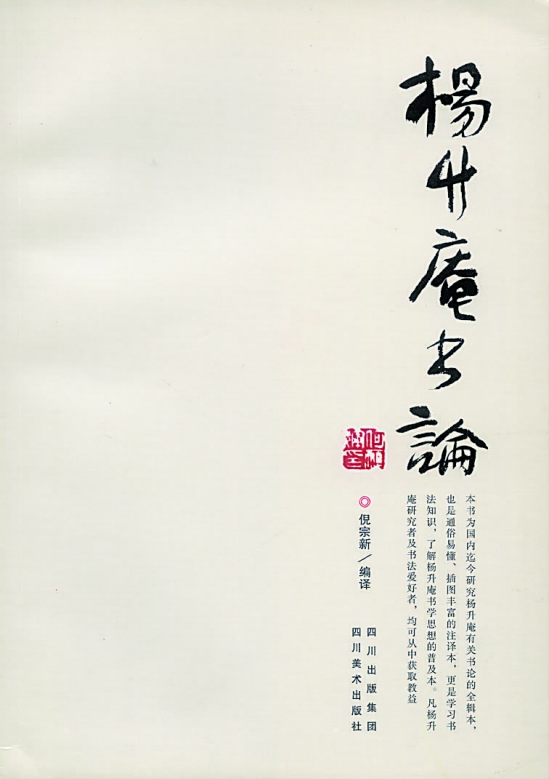 楊升庵书論
本书为国内迄今研究杨升庵有关书论的全辑本，
也是通俗易懂、插图丰富的注译本，更是学习书
法知识，了解杨升庵书学思想的普及本。凡杨升
庵研究者及书法爱好者，均可从中获取教益
◎倪宗新／编译
四川出版集团
四川美术出版社